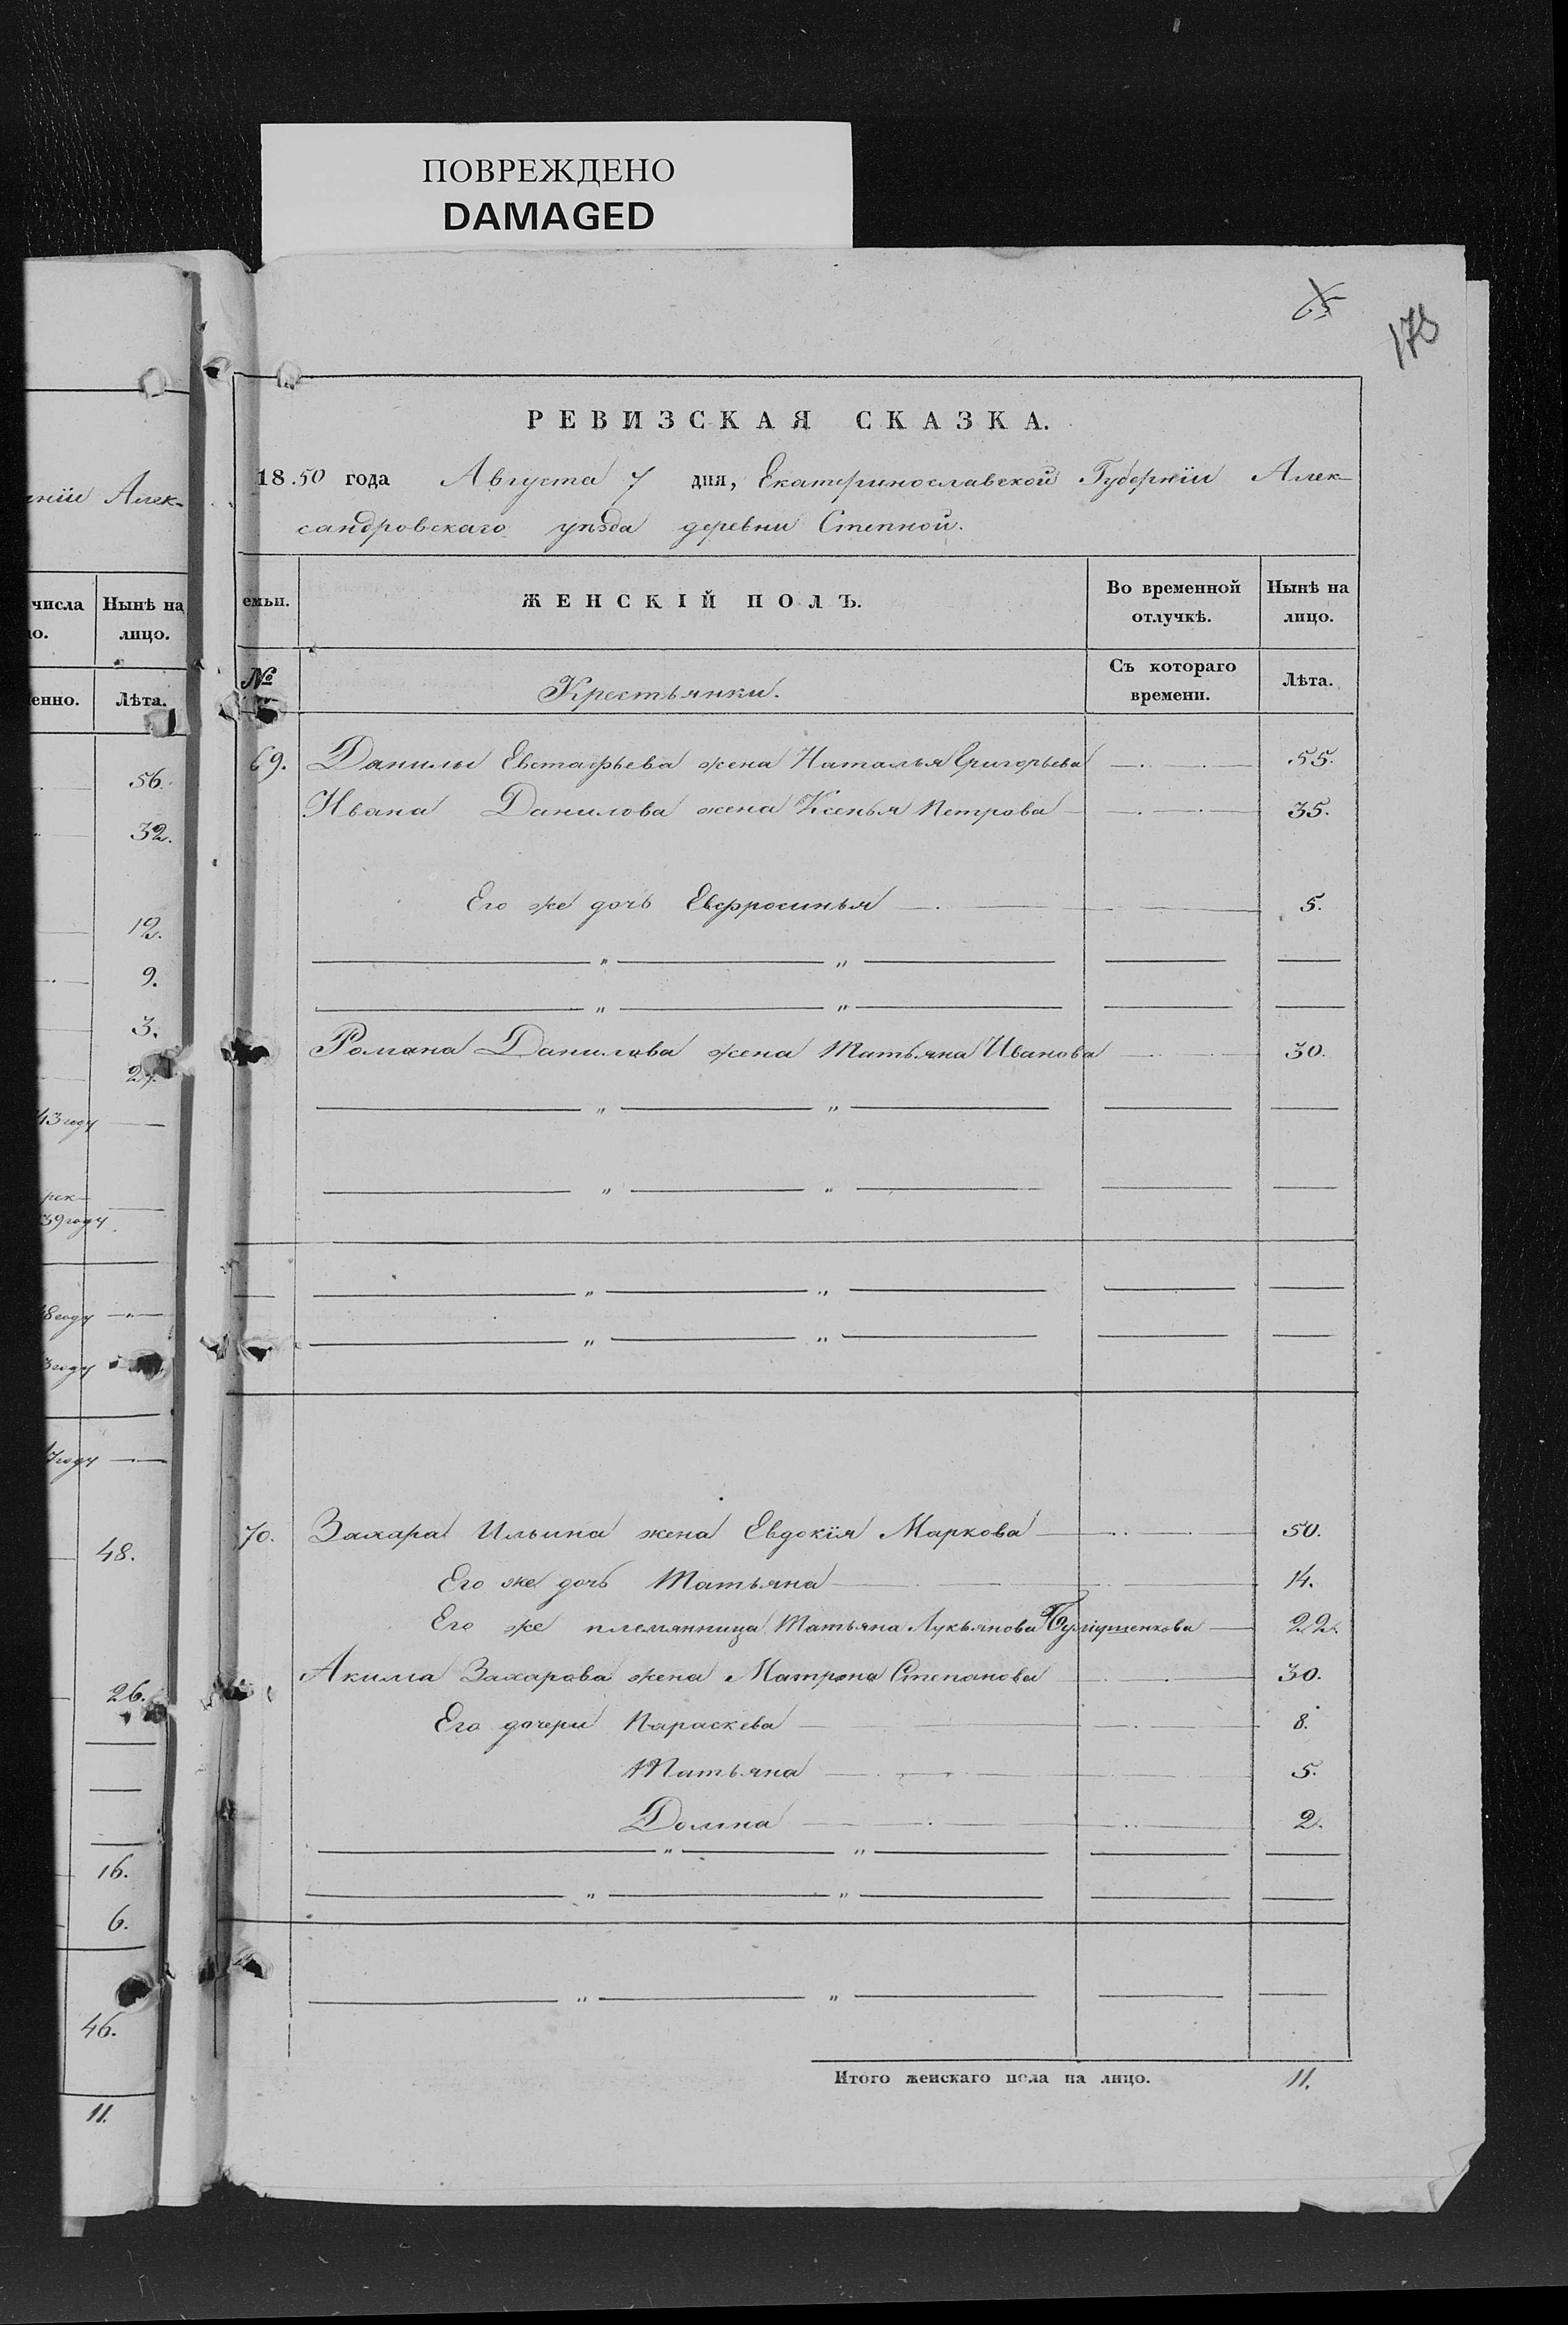 ПОВРЕЖДЕНО
DAMAGED
65
178
РЕВИЗСКАЯ СКАЗКА.
1850 года Августа 7 дня, Екатеринославской Губерніи Алек-
сандровскаго уѣзда деревни Степной.
емьи. ЖЕНСКІЙ ПОЛЪ. Во временной отлучкѣ. Нынѣ на лицо.
№ Крестьянки. Съ котораго времени. Лѣта.
69. Данилы Евстафьева жена Наталья Григорьева 55.
Ивана Данилова жена Ксенья Петрова 35.
Его же дочь Евфросинья 5.
Романа Данилова жена Татьяна Иванова 30.
70. Захара Ильина жена Евдокія Маркова 50.
Его же дочь Татьяна 14.
Его же племянница Татьяна Лукьянова 22.
Акима Захарова жена Матрона Степанова 30.
Его дочери Параскева 8.
Татьяна 5.
Домна 2.
Итого женскаго пола на лицо. 11.
ніи Алек-
числа Нынѣ на
о. лицо.
енно. Лѣта.
56.
32.
12.
9.
3.
43 году
рек-
39 году
8 году
3 году
7 году
48.
26.
16.
6.
46.
11.